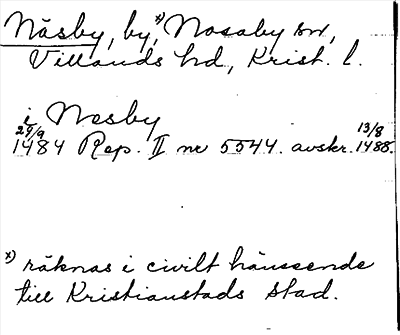 Näsby, by,ˣ⁾ Nosaby sn,
Villands hd, Krist. l.
i Nesby
29/9 13/8
1484 Rep. II nr 5544. avskr. 1488.
x) räknas i civilt hänseende
till Kristianstads stad.